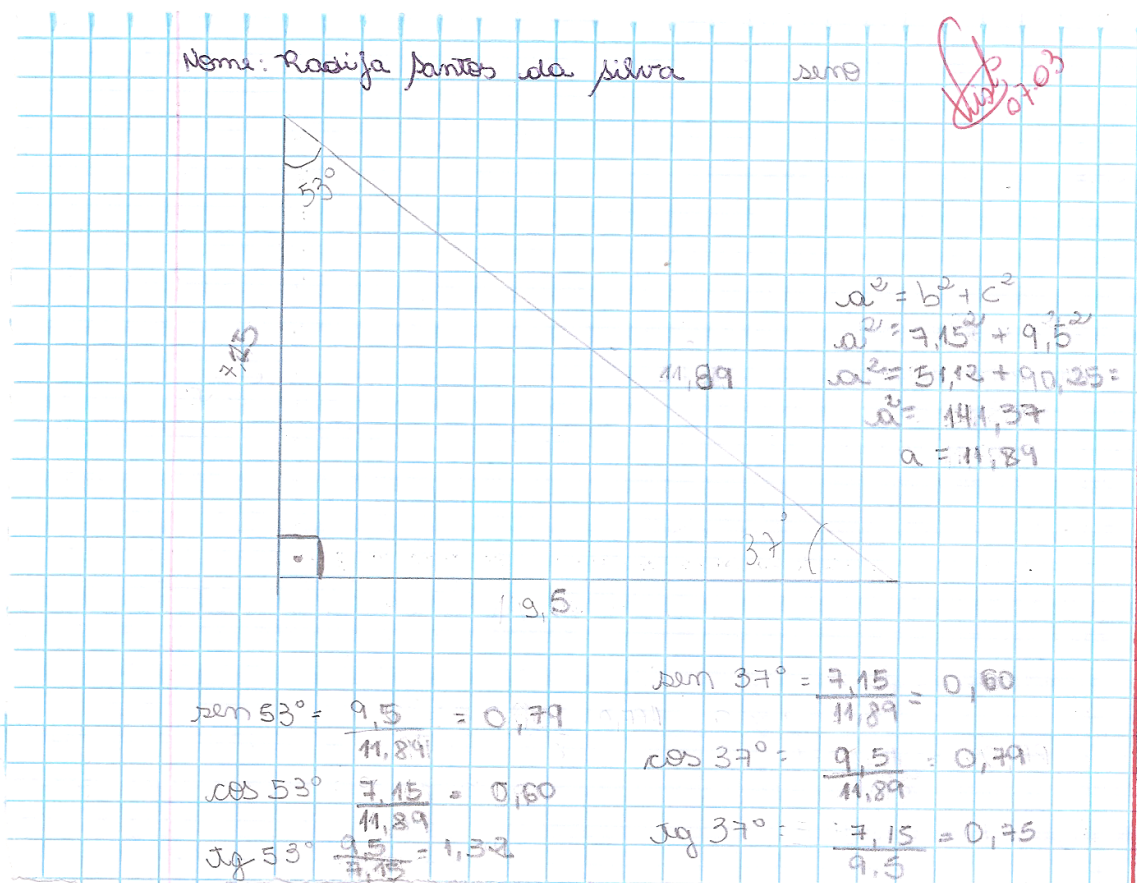 Nome: Radija Santos da Silva seno
Visto 07.03
53°
7,15
11,89
37°
9,5
a² = b² + c²
a² = 7,15² + 9,5²
a² = 51,12 + 90,25 =
a² = 141,37
a = 11,89
sen 53° = 9,5 / 11,89 = 0,79
cos 53° 7,15 / 11,89 = 0,60
tg 53° 9,5 / 7,15 = 1,32
sen 37° = 7,15 / 11,89 = 0,60
cos 37° = 9,5 / 11,89 = 0,79
tg 37° = 7,15 / 9,5 = 0,75